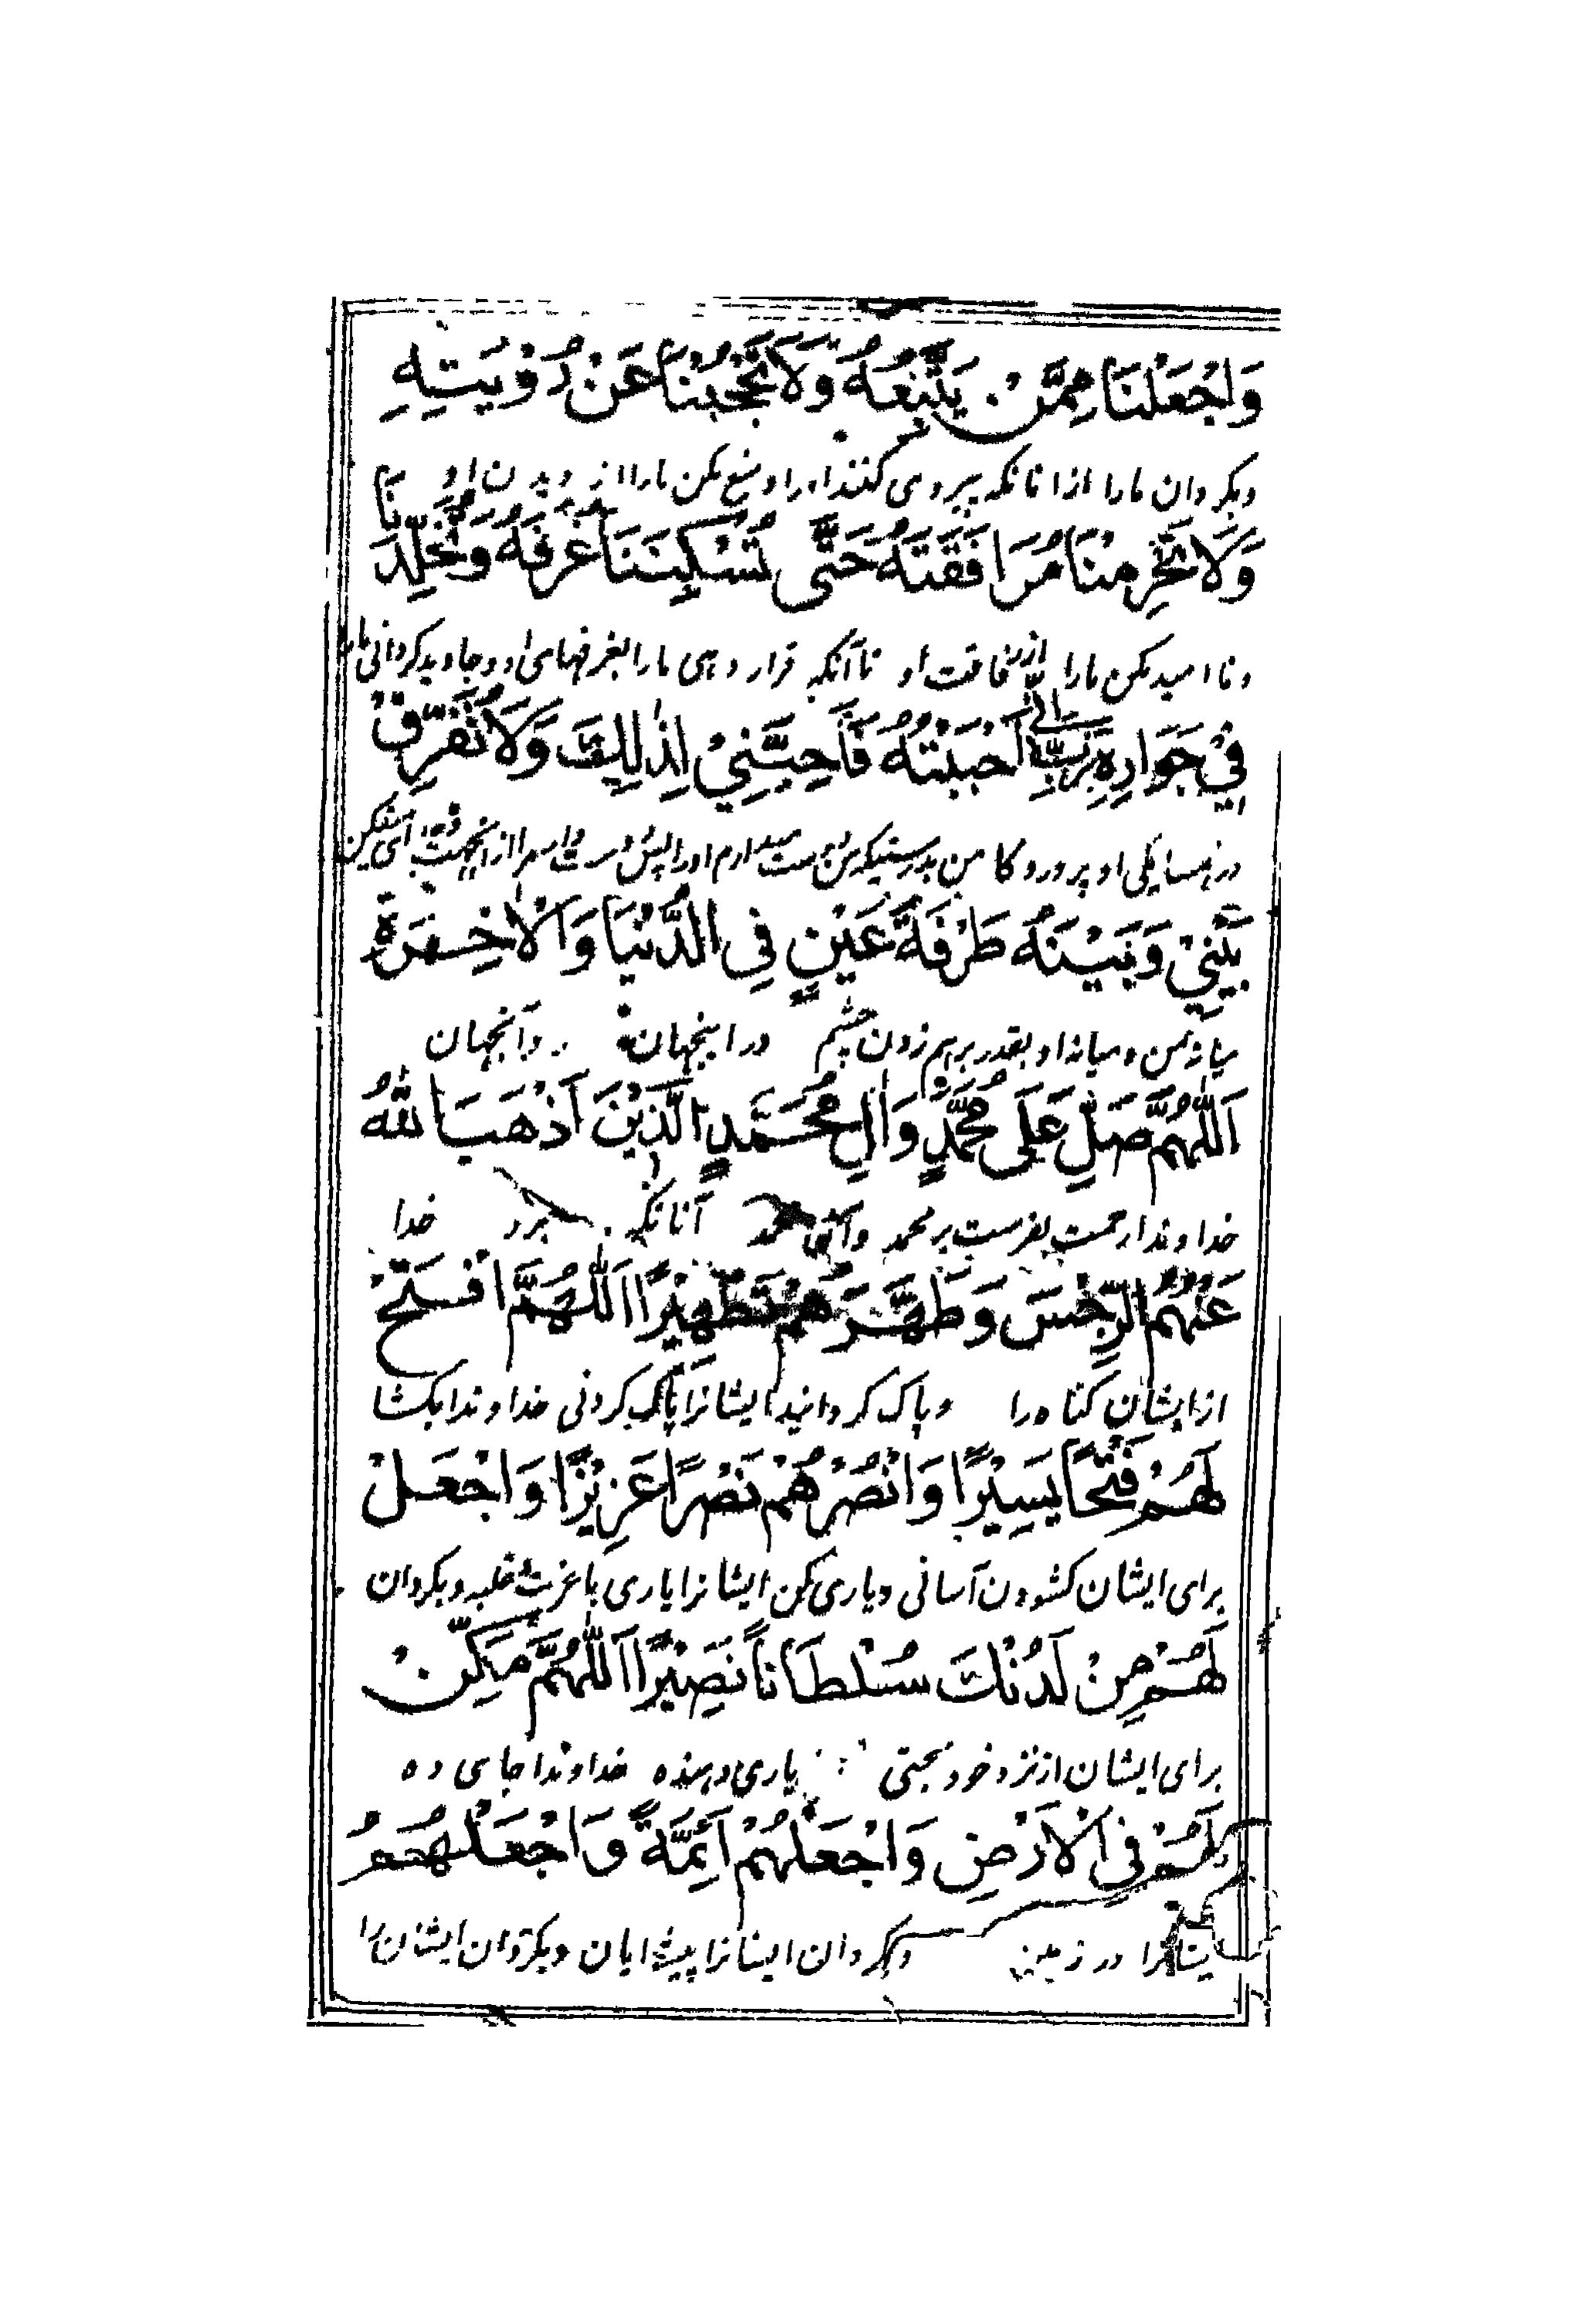 وَاجْعَلْنَا مِمَّنْ يَتَّبِعُهُ وَلَا تَحْجُبْنَا عَنْ رُؤْيَتِهِ
وبگردان مارا ازانانکه پیروی کنند اورا ومنع مکن مارا از دیدن او
وَلَا تَحْرِمْنَا مُرَافَقَتَهُ حَتَّى تُسْكِنَنَا غُرَفَهُ وَتُخَلِّدَنَا
ونا امید مکن مارا از رفاقت او تاآنکه قرار دهی مارا بغرفهای او وجاوید گردانی مارا
فِيْ جَوَارِهِ رَبِّ اِنِّيْ اَحْبَبْتُهُ فَاَحِبَّنِيْ لِذٰلِكَ وَلَا تُفَرِّقْ
در همسایگی او پروردگا من بدرستیکه من دوست میدارم اورا پس دوست دار مرا ازانجهت
بَيْنِيْ وَبَيْنَهُ طَرْفَةَ عَيْنٍ فِى الدُّنْيَا وَالْاٰخِرَةِ
میانه من ومیانه او بقدر برهم زدن چشم دراینجهان وآنجهان
اَللّٰهُمَّ صَلِّ عَلَى مُحَمَّدٍ وَاٰلِ مُحَمَّدٍ الَّذِيْنَ اَذْهَبَ اللّٰهُ
خداوندا رحمت بفرست بر محمد وآل محمد آنانکه برد خدا
عَنْهُمُ الرِّجْسَ وَطَهَّرَهُمْ تَطْهِيْرًا اَللّٰهُمَّ افْتَحْ
ازایشان گناه را وپاک گردانید ایشانرا پاک کردنی خداوندا بکشا
لَهُمْ فَتْحًا يَسِيْرًا وَانْصُرْهُمْ نَصْرًا عَزِيْزًا وَاجْعَلْ
برای ایشان کشودن آسانی ویاری کن ایشانرا یاری با عزت وغلبه وبگردان
لَهُمْ مِنْ لَدُنْكَ سُلْطَانًا نَصِيْرًا اَللّٰهُمَّ مَكِّنْ
برای ایشان ازنزد خود حجتی یاری دهنده خداوندا جای ده
لَهُمْ فِى الْاَرْضِ وَاجْعَلْهُمْ اَئِمَّةً وَاجْعَلْهُمُ
ایشانرا در زمین وبگردان ایشانرا پیشوایان وبگردان ایشان را